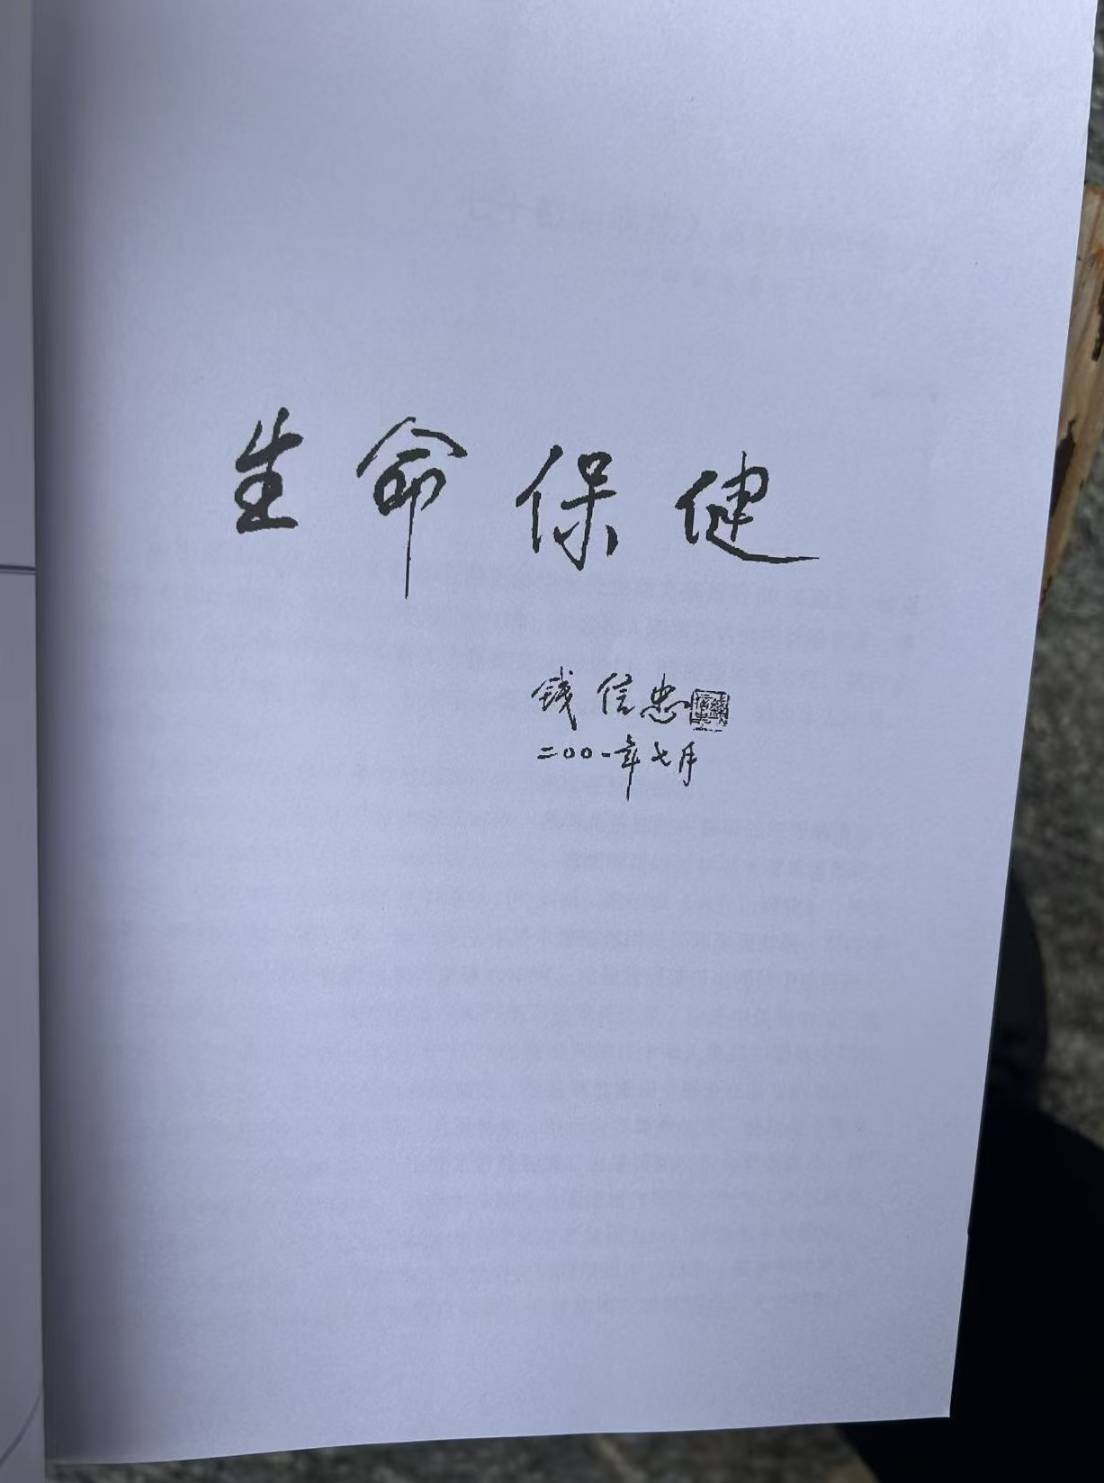 生命保健
钱信忠
二〇〇一年七月